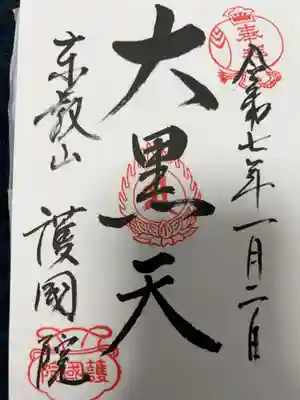 奉拝
令和七年一月二日
大黒天
東叡山 護國院
護國院